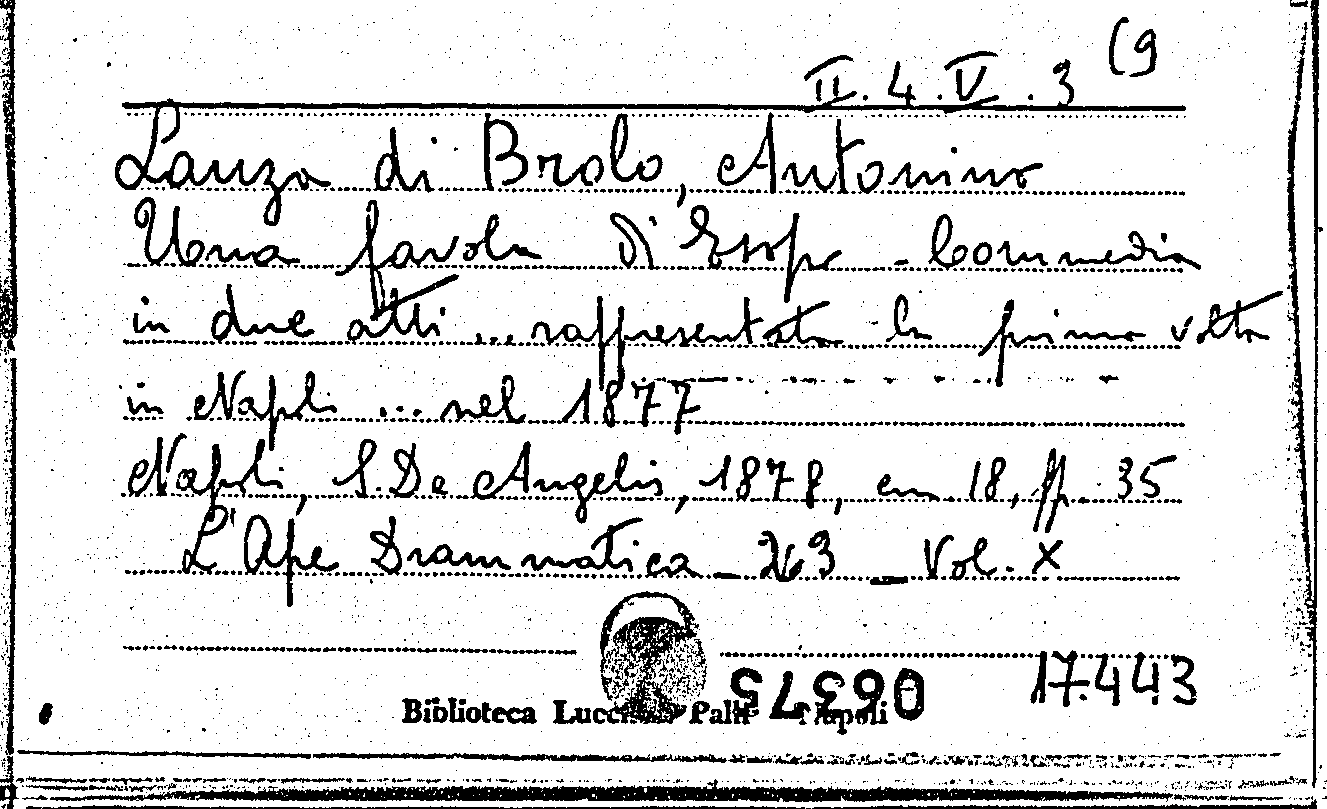 II. 4. V. 3 (9
Lanza di Brolo, Antonino
Una favola di Esopo - Commedia
in due atti ... rappresentata la prima volta
in Napoli ... nel 1877
Napoli, S. De Angelis, 1878, in 18, pp. 35
L'Ape Drammatica - 263 - Vol. X
06375
17.443
Biblioteca Napoli